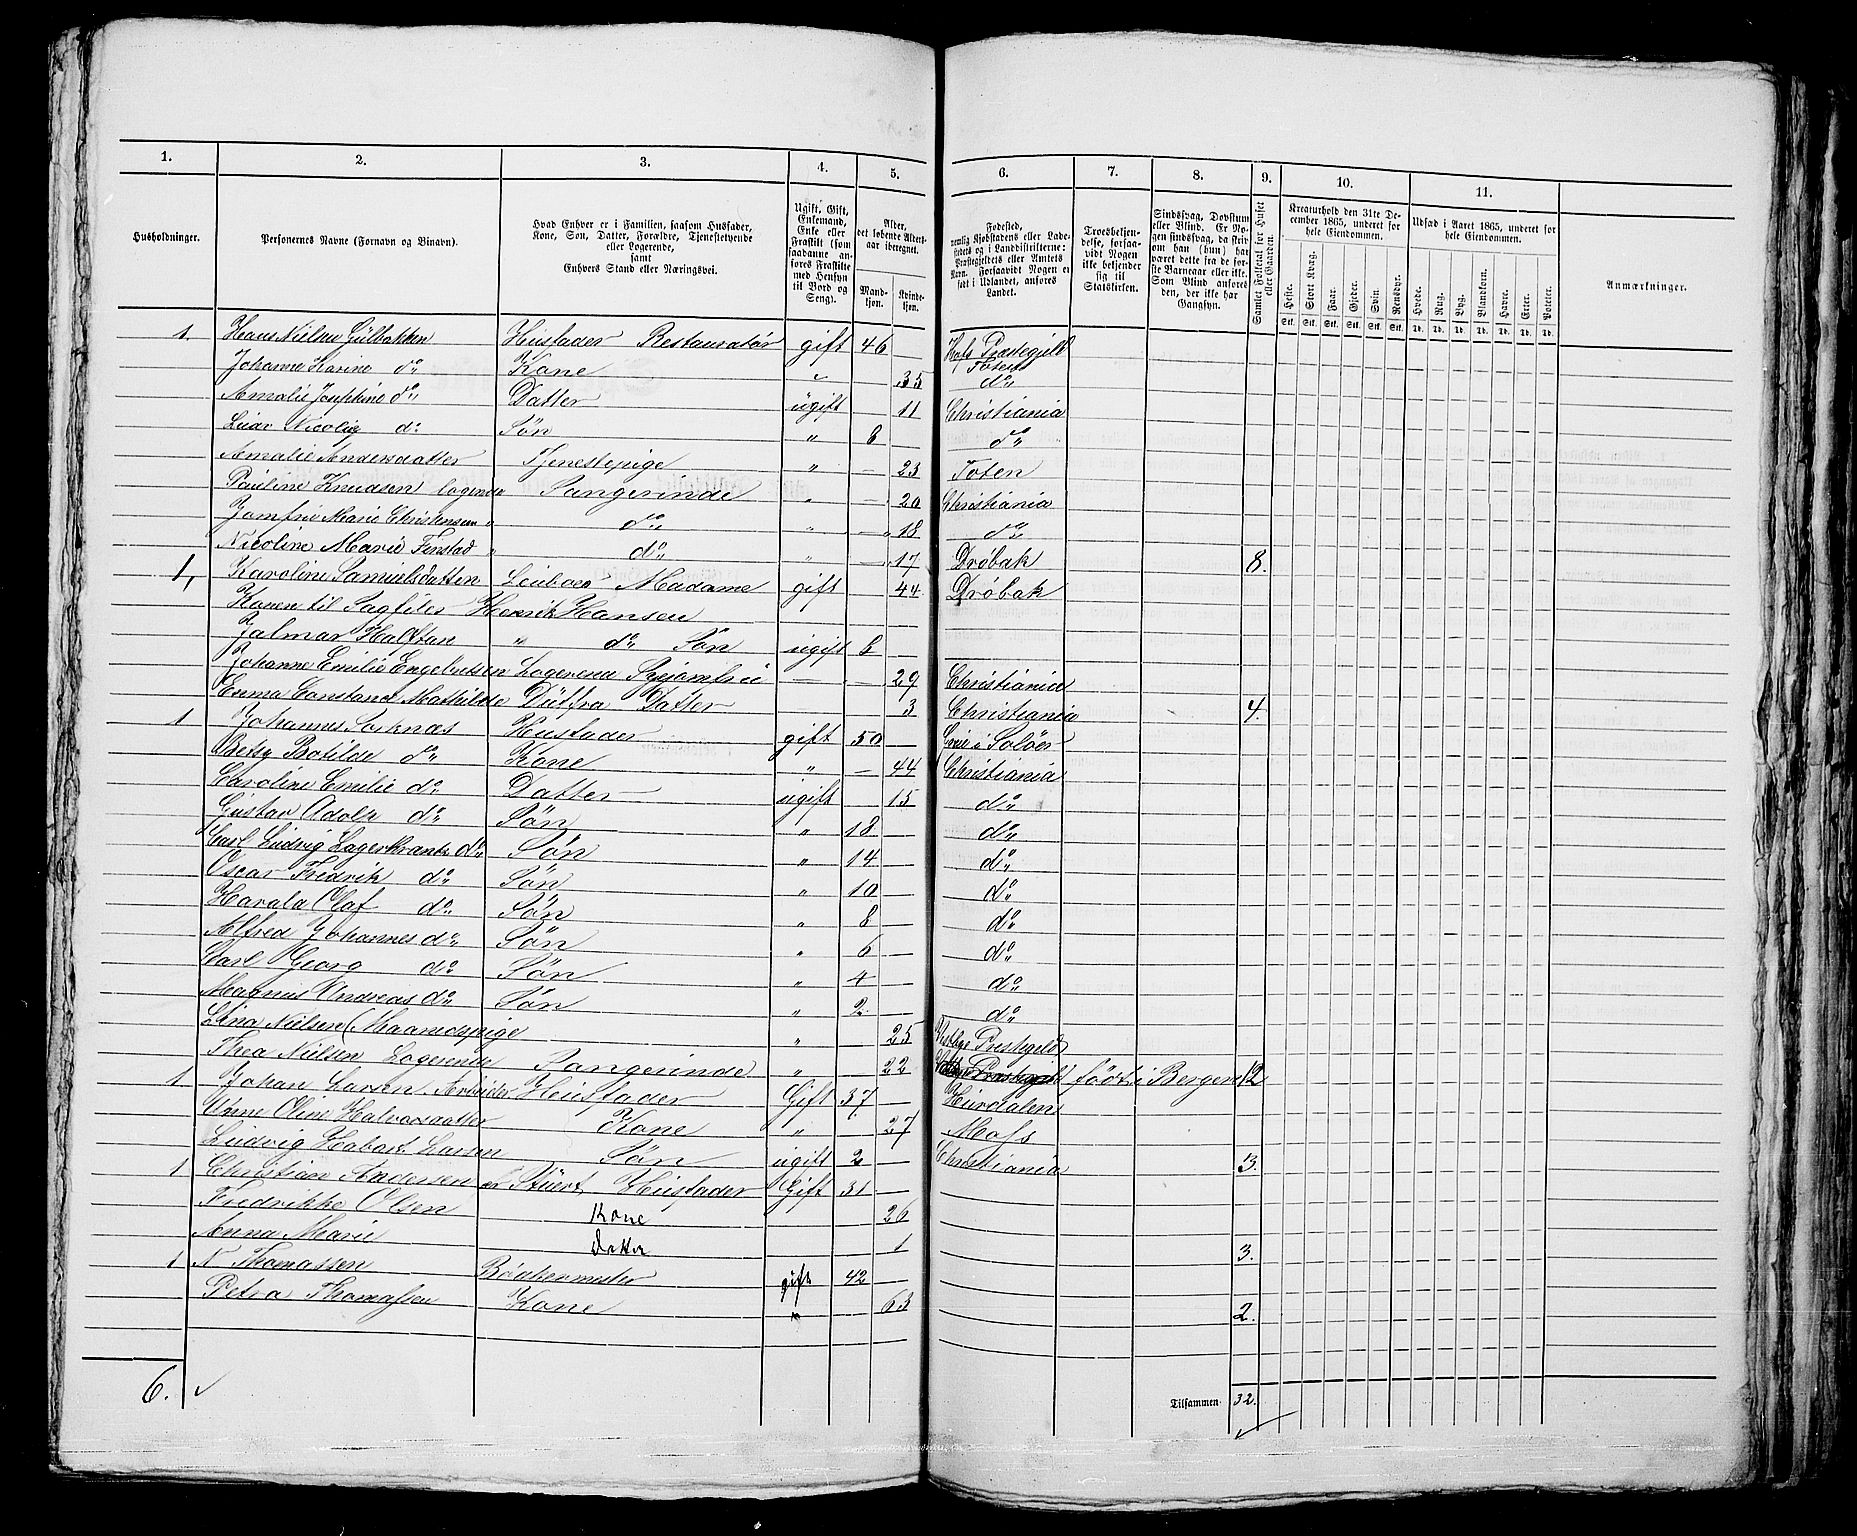 1. 2. 3. 4. 5. 6. 7. 8. 9. 10. 11.
Husholdninger.
Personernes Navne (Fornavn og Binavn).
Hvad Enhver er i Familien, saasom Husfader, Kone, Søn, Datter, Forældre, Tjenestetyende eller Logerende, samt Enhvers Stand eller Næringsvei.
Ugift, Gift, Enkemand, Enke eller Fraskilt (som saadanne anføres Fraskilte med Hensyn til Bord og Seng).
Alder, det løbende Alders-aar iberegnet.
Mand-kjøn. Kvinde-kjøn.
Fødested, nemlig Kjøbstadens eller Ladestedets og i Landdistrikterne: Præstegjeldets eller Amtets Navn. Forsaavidt Nogen er født i Udlandet, anføres Landet.
Troesbekjendelse, forsaavidt Nogen ikke bekjender sig til Statskirken.
Sindssvag, Døvstum eller Blind. Er Nogen sindssvag, da skriv om han (hun) har været dette fra de første Barneaar eller ikke. Som Blind anføres den, der ikke har Gangsyn.
Samlet Folketal for Huset eller Gaarden.
Kreaturhold den 31te December 1865, underet for hele Eiendommen.
Heste. Stort Kvæg. Faar. Gjeder. Svin. Rensdyr.
Udsæd i Aaret 1865, underet for hele Eiendommen.
Hvede. Rug. Byg. Blandkorn. Havre. Erter. Poteter.
Anmærkninger.
Stk. Stk. Stk. Stk. Stk. Stk. Td. Td. Td. Td. Td. Td. Td.
1. Hans Nielsen Gülbakken Husfader Restauratør gift 46 — Hofs Præstegjeld Toten
Johanne Karine do Kone " — 35 do
Amalie Josephine do Datter ugift — 11 Christiania
Nicolay do Søn " 8 — do
Amalie Andersdatter Tjenestepige " — 23 Toten
Pauline Knudsen logende Sangerinde " — 20 Christiania
Jomfru Marie Christensen " do " — 18 do
Nicoline Marie Finstad " do " — 17 Drøbak 8.
1, Karoline Samuelsdatten Madame gift 44 Drøbak
Konen til Sagfiler Henrik Hansen
Jalmar Halftan " do Søn ugift 6 —
Johanne Emilie Engebretsen Logerend — — 29 Christiania
Emma Constance Mathilde Datter — 3 Christiania 4.
1 Johannes Sorknæs Husfader gift 50 — Solöer
Betsy Botilde do Kone " — 44 Christiania
Caroline Emilie do Datter ugift 15 do
Gustav Adolf do Søn " 18 — do
Carl Ludvig Lagerkrantz do Søn " 14 — do
Oscar Fredrik do Søn " 10 — do
Harald Olaf do Søn " 8 — do
Alfred Johannes do Søn " 6 — do
Carl Georg do Søn " 4 — do
Magnus Andreas do Søn " 2 — do
Lina Nielsen " 25 Vestbye Prestegeld
Thea Nielsen Logerende Sangerinde " 22 født i Bergen 12
1 Johan Larsen Arbeider Husfader Gift 37 — Hurdalen
Anne Oline Halvorsdatter Kone " — 27 Moss
Ludvig Larsen Søn ugift 2 — Christiania 3.
1 Christian Andersen Stuert Husfader Gift 31 —
Fredrikke Olsen Kone 26
Anna Marie Datter 1 3.
1 N Thomassen Bødkermester gift 42 —
Petra Thomassen Kone " — 63 2.
6. Tilsammen 32.